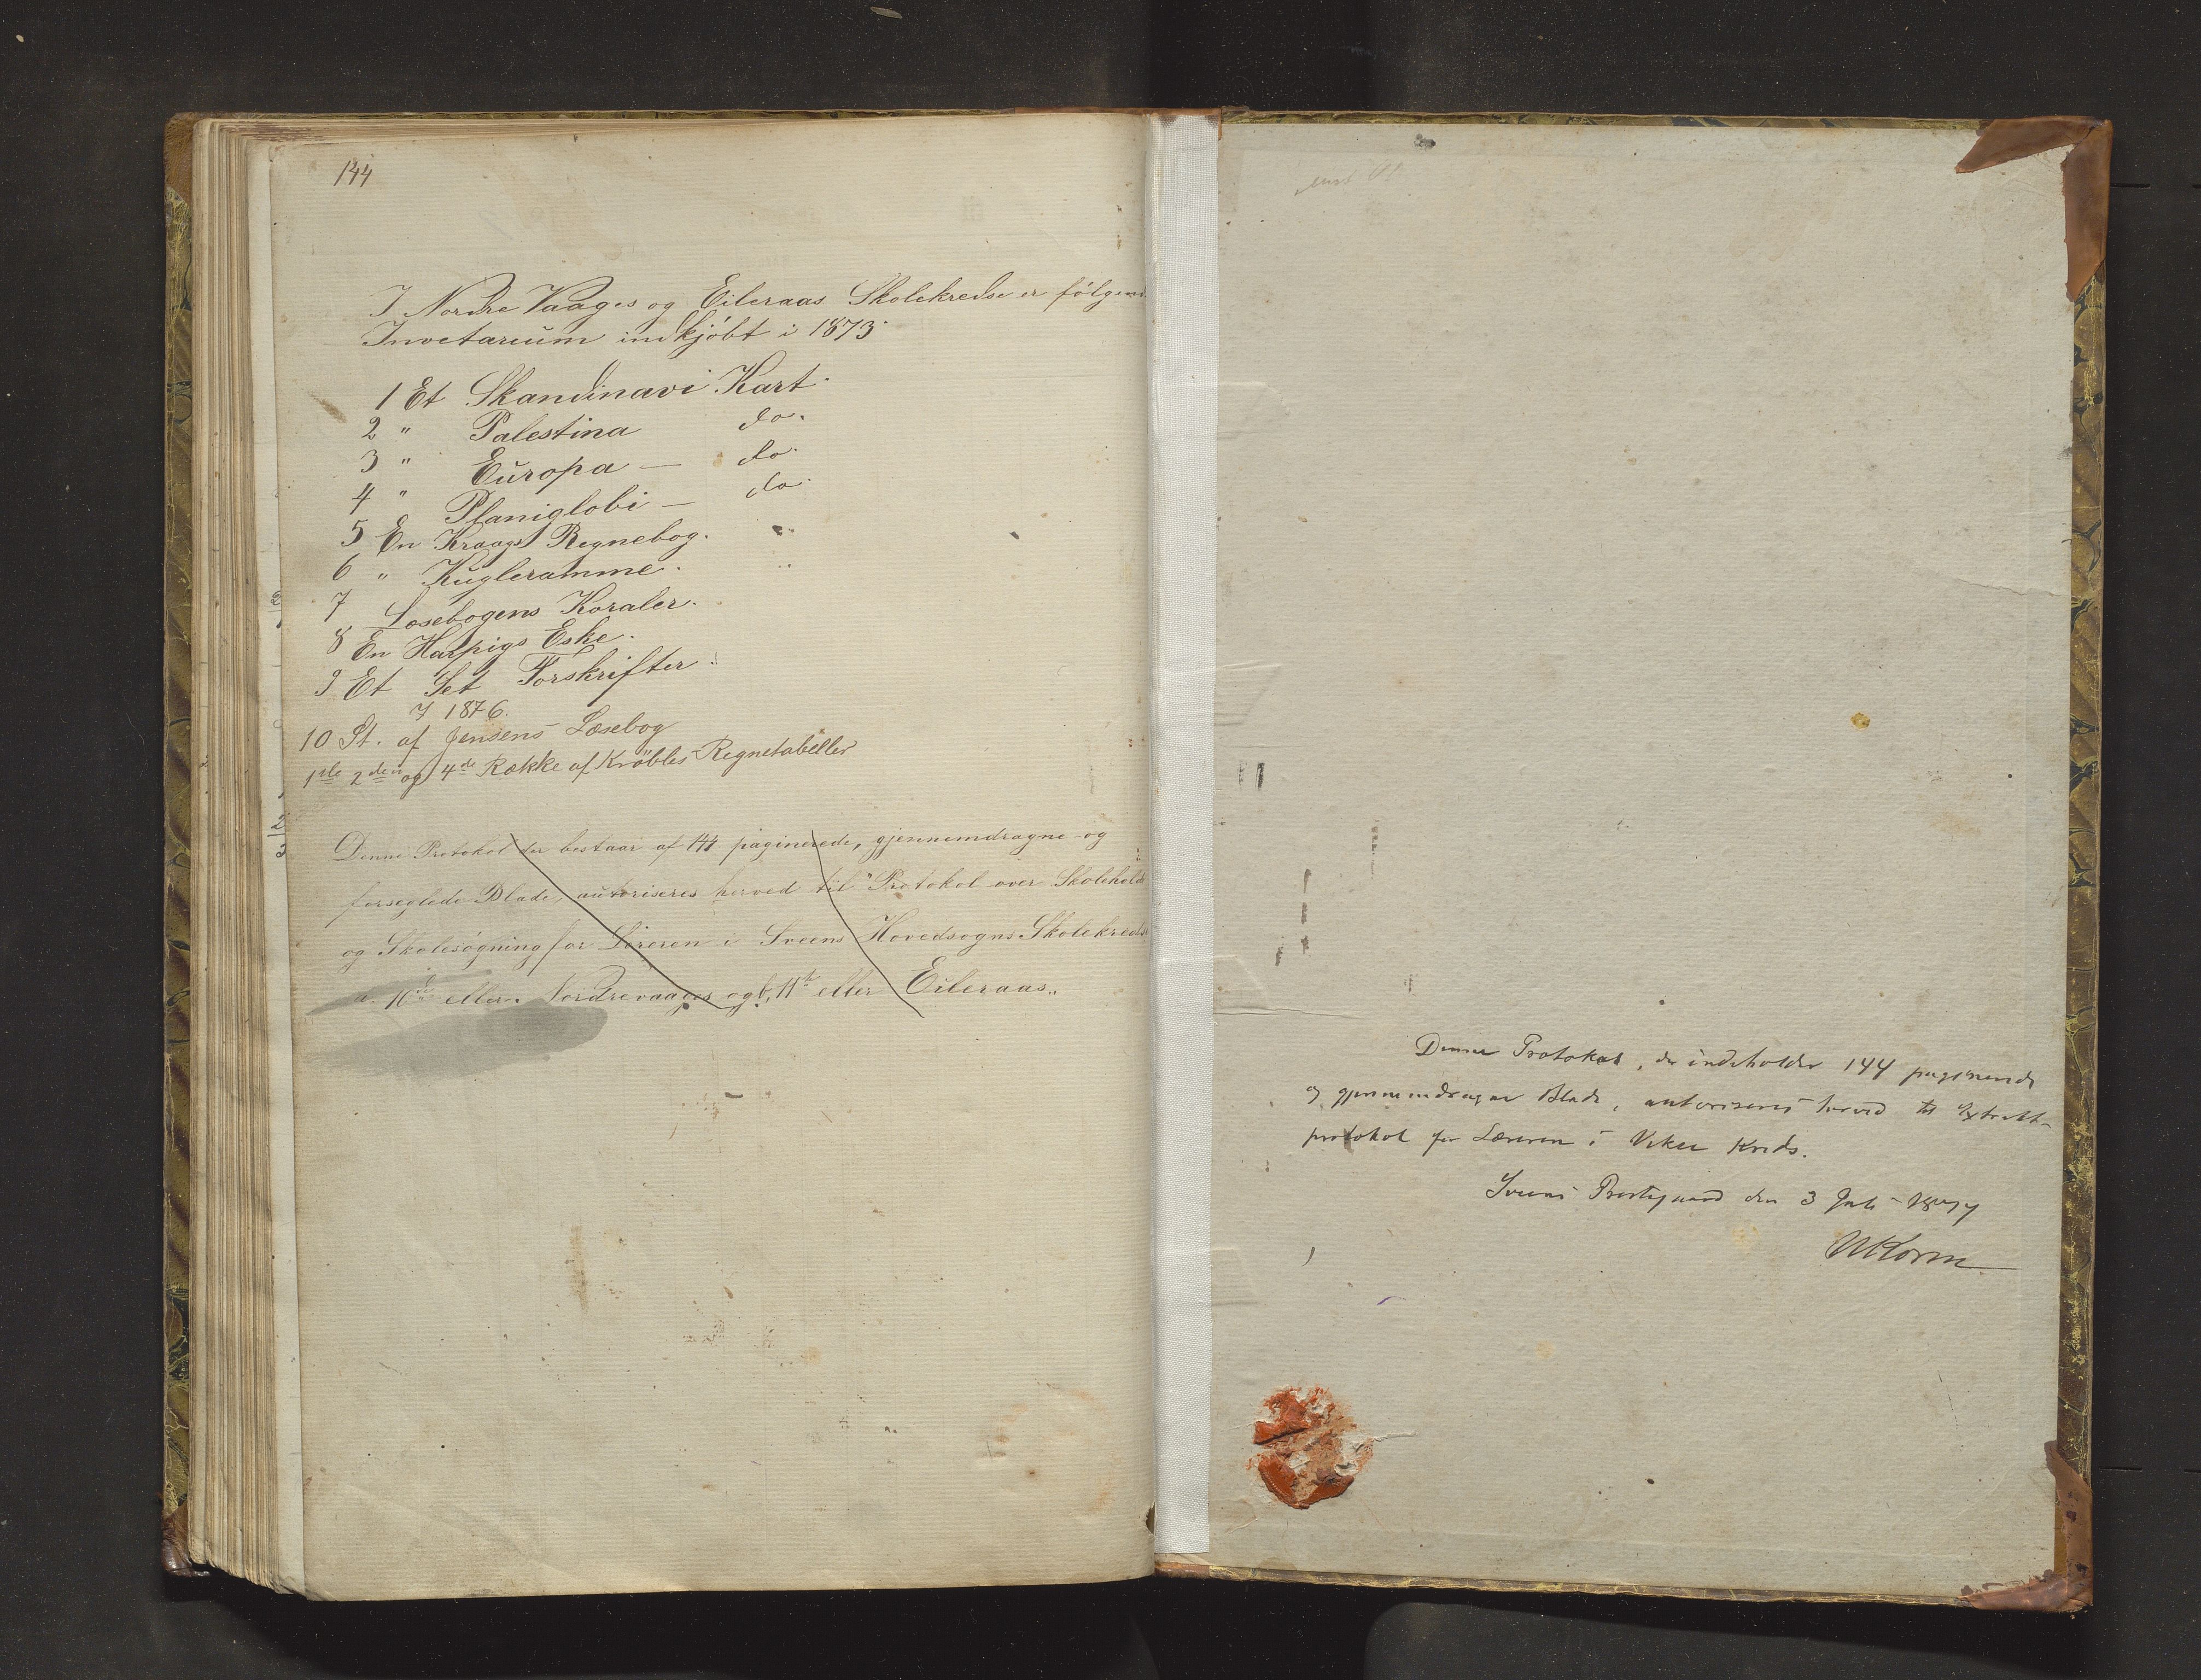 144
I Nordre Vaages og Eileraas Skolekredse er fölgend
Invetarium indkjöbt i 1873.
1 Et Skandinavi Kart.
2 " Palestina do.
3 " Europa — do.
4 " Planiglobi — do.
5 En Kraags Regnebog.
6 " Kugleramme.
7 Læsebogens Koraler.
8 En Harpigs Eske.
9 Et Set Forskrifter.
I 1876.
10 St. af Jensens Læsebog
1ste 2den og 4de Række af Kröbles Regnetabeller
Denne Protokol der bestaar af 144 paginerede, gjennemdragne og
forseglede Blade, autoriseres herved til "Protokol over Skolehold
og Skolesögning for Læreren i Sveens Hovedsogns Skolekredse
a. 10de eller Nordrevaages og b, 11te eller Eileraas.
Denne Protokol, der indeholder 144 paginerede
og gjennemdragne Blade, autoriseres herved til Extrakt-
protokol for Læreren i Viker Kreds.
Sveens Præstegaard den 3 Juli 1877